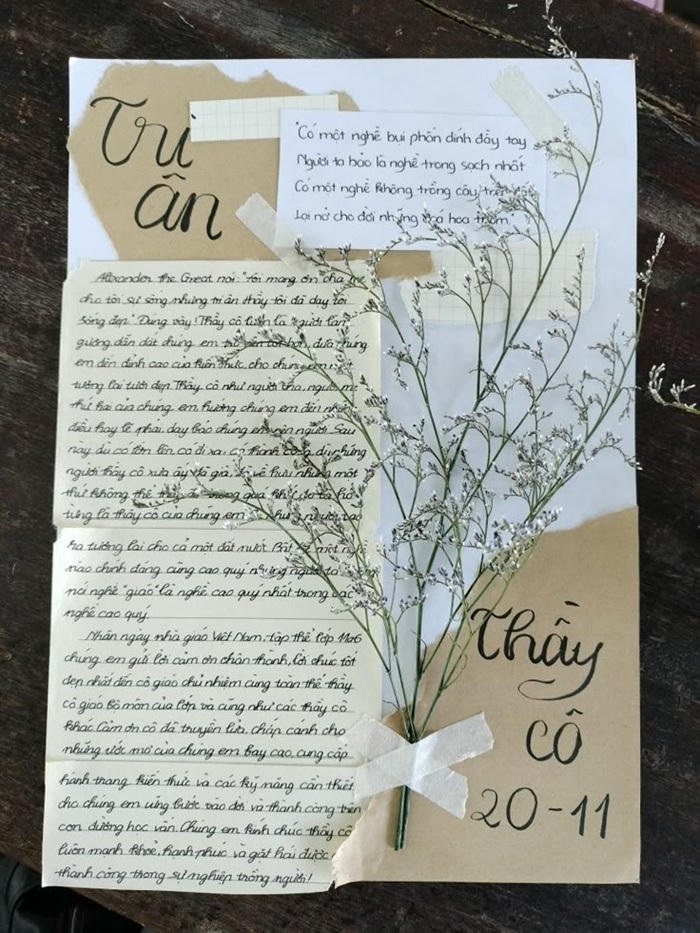 Tri
ân
"Có một nghề bụi phấn dính đầy tay
Người ta bảo là nghề trong sạch nhất
Có một nghề không trồng cây trên
Lại nở cho đời những hoa thơm."
Alexander the Great nói: "Tôi mang ơn cha
cho tôi sự sống nhưng tri ân thầy tôi đã dạy tôi
sống đẹp." Đúng vậy! Thầy cô luôn là người
gương dẫn dắt chúng em trở nên tốt hơn, đưa chúng
em đến đỉnh cao của kiến thức, cho chúng em một
tương lai tươi đẹp. Thầy cô như người cha, người mẹ
thứ hai của chúng em hướng chúng em đến những
điều hay lẽ phải, dạy bảo chúng em nên người. Sau
này dù có lớn lên, có đi xa, có thành công
người thầy cô xưa ấy đã già, đã về hưu nhưng một
thứ không thể thay đổi trong quá khứ đó là họ
từng là thầy cô của chúng em, như người tạo
ra tương lai cho cả một đất nước. Bất kể một nghề
nào chính đáng cũng cao quý nhưng người ta
nói nghề "giáo" là nghề cao quý nhất trong các
nghề cao quý.
Nhân ngày nhà giáo Việt Nam, tập thể lớp
chúng em gửi lời cảm ơn chân thành, lời chúc tốt
đẹp nhất đến cô giáo chủ nhiệm cùng toàn thể thầy
cô giáo bộ môn của lớp và cũng như các thầy cô
khác. Cảm ơn cô đã truyền lửa, chắp cánh cho
những ước mơ của chúng em bay cao, cung cấp
hành trang kiến thức và các kỹ năng cần thiết
cho chúng em vững bước vào đời và thành công trên
con đường học vấn. Chúng em kính chúc thầy cô
luôn mạnh khỏe, hạnh phúc và gặt hái được
thành công trong sự nghiệp trồng người!
Thầy
cô
20-11